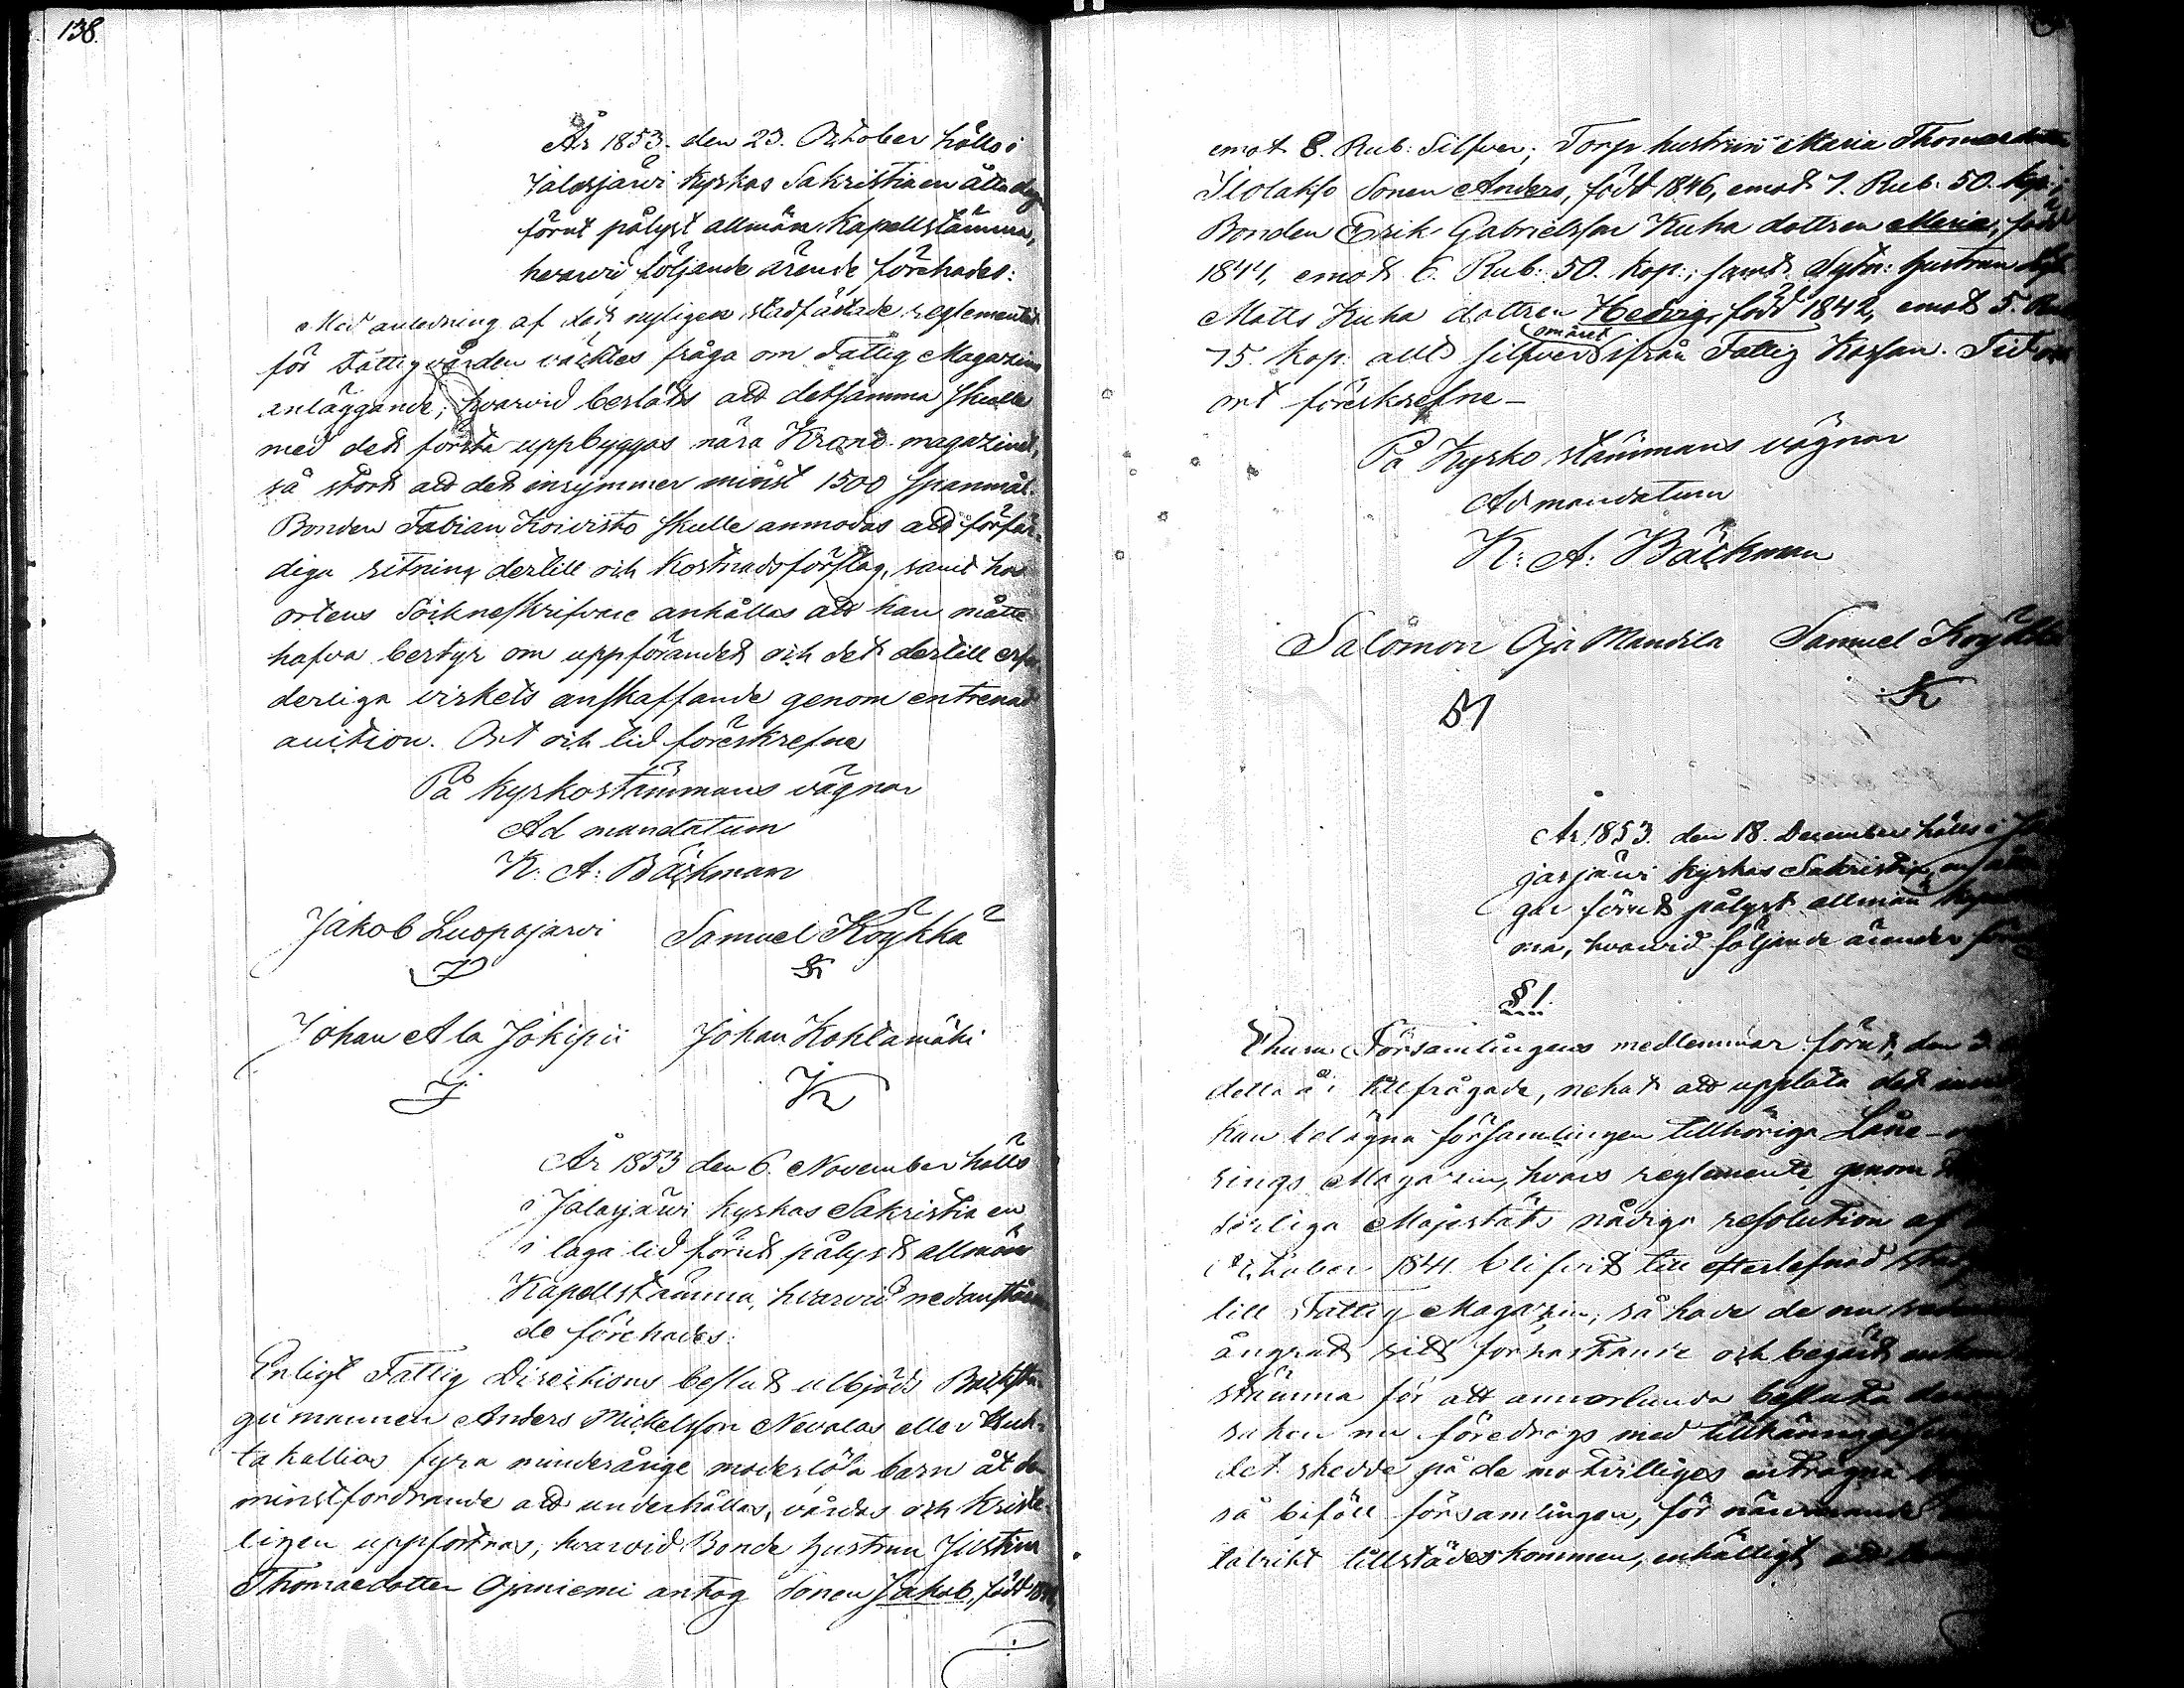 138.
År 1853. den 23. October hölls i
Jalasjärvi Kyrkas Sakristia en åtta dagar
förut pålyst allmän Kapellstämma,
hvarvid följande ärende förehades:
Med anledning af det nyligen stadfästade reglementet
för Fattigvården väcktes fråga om Fattig Magazins
anläggande; hvarvid beslöts att detsamma skulle
med det första uppbyggas nära Krono-magazinet,
så stort att det inrymmer minst 1500 spanmål.
Bonden Fabian Koivisto skulle anmodas att förfär-
diga ritning dertill och Kostnadsförslag, samt hos
ortens Sockneskrifvare anhållas att han måtte
hafva bestyr om uppförandet och det dertill erfor
derliga virkets anskaffande genom entrenad
auction. Ort och tid förëskrefne
På Kyrkostämmans vägnar
Ad mandatum
K: A: Bäckman
Jakob Luopajärvi SamuelKöykkä
J K
Johan Ala Jokipii Johan Kohtamäki
J K
År 1853 den 6. November hölls
i Jalasjärvi Kyrkas Sakristia en
i laga tid förut pålyst allmän
Kapellstämma, hvarvid nedanståen
de förehades:
Enligt Fattig Directions beslut utbjöds Backstu-
gumannen Anders Mickelsson Nevalas eller
takallios fyra minderårige moderlösa barn åt den
minstfordrande att underhållas, vårdas och Kriste-
ligen uppfostras, hvarvid Bonde hustrun Justina
Thomaedotter Ojaniemi antog Sonen Jakob, född
emot 8. Rub: Silfver; Torp. hustrun Maria Thomaedotter
Ilolakso Sonen Anders, född 1846, emot 7. Rub: 50. kop:;
Bonden Erik Gabrielsson Kuha dottren Maria, född
1844, emot 6. Rub: 50. kop:; samt Sytn: hustrun
Matts Kuha dottren Hedvig, född 1842, emot 5. Rub
75. kop: allt silfver omåret ifrån Fattig Kassan. Tid och
ort förëskrefne –
På Kyrkostämmans vägnar
Ad mandatum
K: A: Bäckman
Salomon Oja Mandila Samuel Köykkä
K
År 1853. den 18. December hölls i
jasjärvi Kyrkas Sakristia, en
gar förut pålyst allmän
ma, hvarvid följande ärender
§ 1.
Ehuru Församlingens medlemmar förut, den
detta år tillfrågade, nekat att upplåta det
kan belägna församlingen tillhöriga Låne-
rings Magazin, hvars reglemente genom
serliga Majestäts nådiga resolution af
October 1841. blifvit till efterlefnad
till Fattig Magazin; så hade de nu
ångrat sitt förhastande och begärt
stämma för att annorlunda besluta
saken nu föredrogs med tillkännagifvande
det skedde på de motvilliges enträgna
så biföll församlingen, för närvarande
talrikt tillstädeskommen, enhälligt att